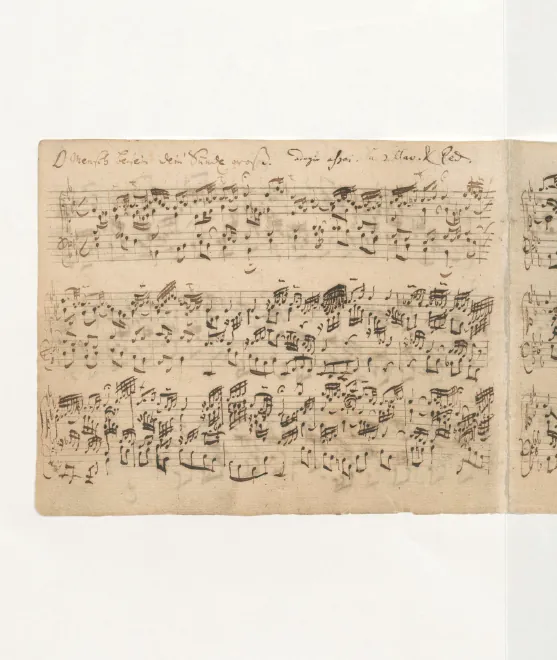 O Mensch bewein dein Sünde gross. adagio assai. à 2 Clav. & Ped.